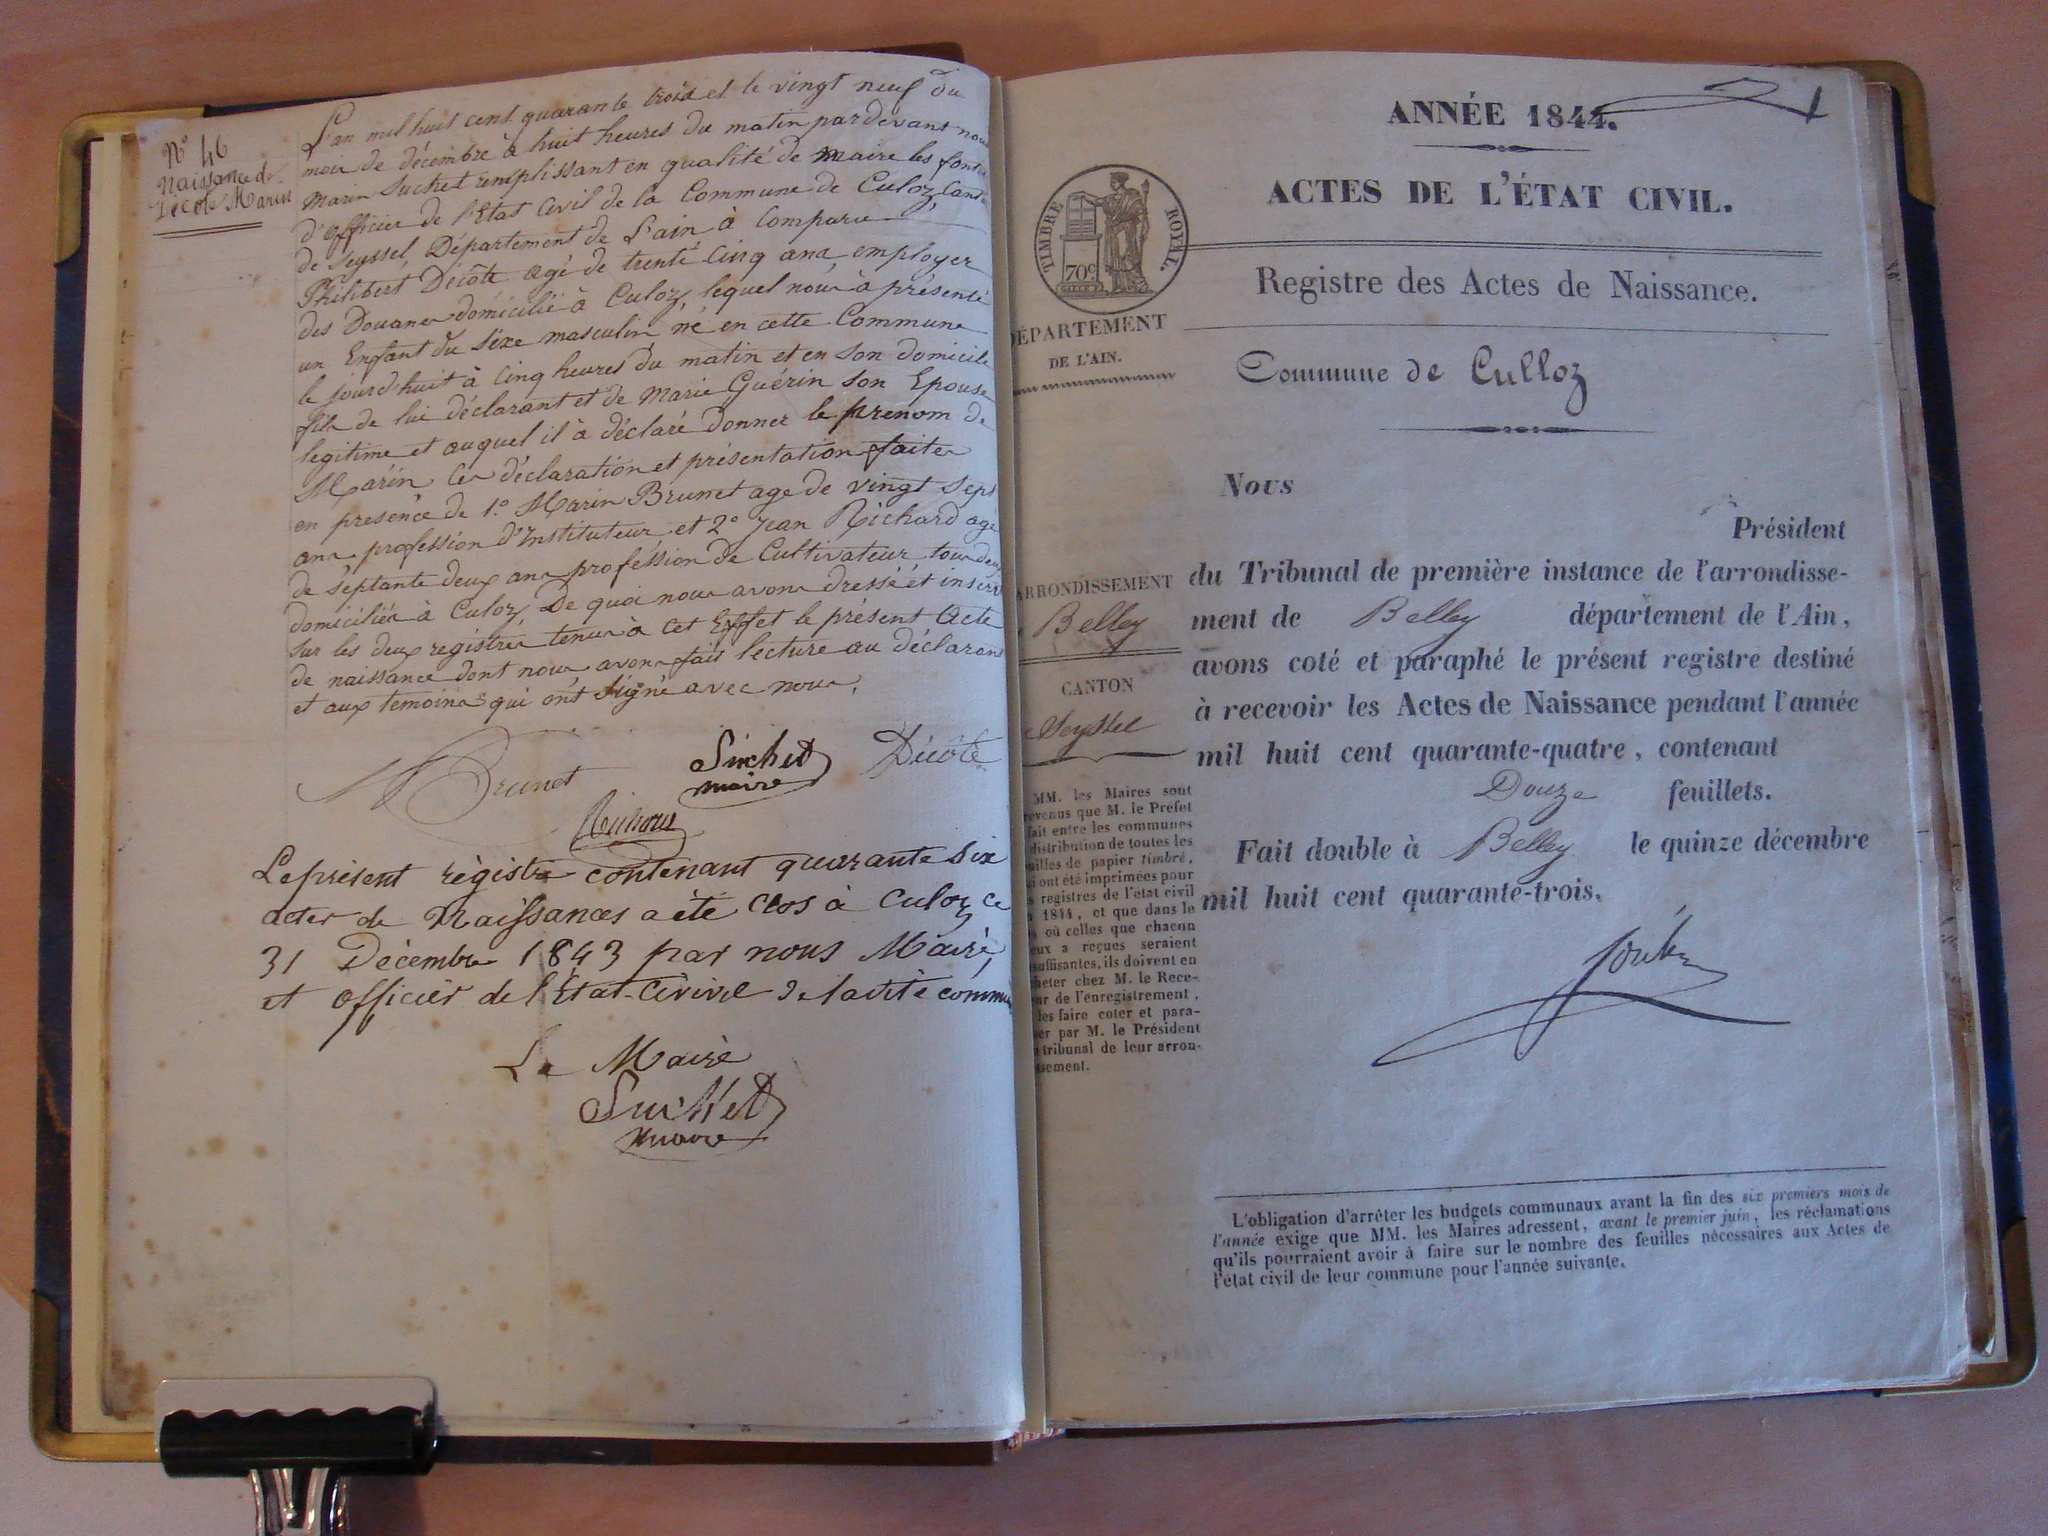 N° 46
Naissance de
Décote Marin
L'an mil huit cent quarante trois et le vingt neuf du
mois de décembre à huit heures du matin pardevant nous
Marin Suchet remplissant en qualité de maire les fonct
d'officier de l'Etat Civil de la Commune de Culoz, Cant
de Seyssel, Département de L'ain à Comparu
Philibert Décôte agé de trente Cinq ans, employer
des Douanes domicilié à Culoz, lequel nous à présenté
un Enfant du sixe masculin né en cette Commune
le jourd'huit à Cinq heures du matin et en son domicile
fils de lui déclarant et de Marie Guérin son Epouse
legitime et auquel il à déclaré donner le prenom de
Marin Ces déclaration et présentation faites
en présence de 1.° Marin Brunet age de vingt sept
ans profession d'Instituteur et 2° Jean Richard agé
de septante deux ans profession de Cultivateur tous deux
domiciliés à Culoz, De quoi nous avons dressé et inscri
sur les deux registres tenus à cet Effet le présent Acte
de naissance dont nous avons fait lecture au déclarant
et aux temoins qui ont signé avec nous.
Brunet Suchet Décôte
maire
Richard
Le présent régistre contenant quarante six
actes de Naissances a été Clos à Culoz ce
31 Décembre 1843 par nous Maire,
et officier de l'État-Civivil de ladite commu
Le Maire
Suchet
maire
ANNÉE 1844.
ACTES DE L'ÉTAT CIVIL.
TIMBRE ROYAL.
70c
Registre des Actes de Naissance.
DÉPARTEMENT
DE L'AIN.
Commune de Culloz
Nous
Président
du Tribunal de première instance de l'arrondisse-
ment de Belley département de l'Ain,
avons coté et paraphé le présent registre destiné
à recevoir les Actes de Naissance pendant l'année
mil huit cent quarante-quatre, contenant
Douze feuillets.
Fait double à Belley le quinze décembre
mil huit cent quarante-trois.
ARRONDISSEMENT
Belley
CANTON
Seyssel
MM. les Maires sont
revenus que M. le Préfet
fait entre les communes
distribution de toutes les
uilles de papier timbré,
i ont été imprimées pour
s registres de l'état civil
1844, et que dans le
s où celles que chacun
eux a reçues seraient
suffisantes, ils doivent en
heter chez M. le Rece-
ur de l'enregistrement,
les faire coter et para-
er par M. le Président
tribunal de leur arron-
sement.
L'obligation d'arrêter les budgets communaux avant la fin des six premiers mois de
l'année exige que MM. les Maires adressent, avant le premier juin, les réclamations
qu'ils pourraient avoir à faire sur le nombre des feuilles nécessaires aux Actes de
l'état civil de leur commune pour l'année suivante.